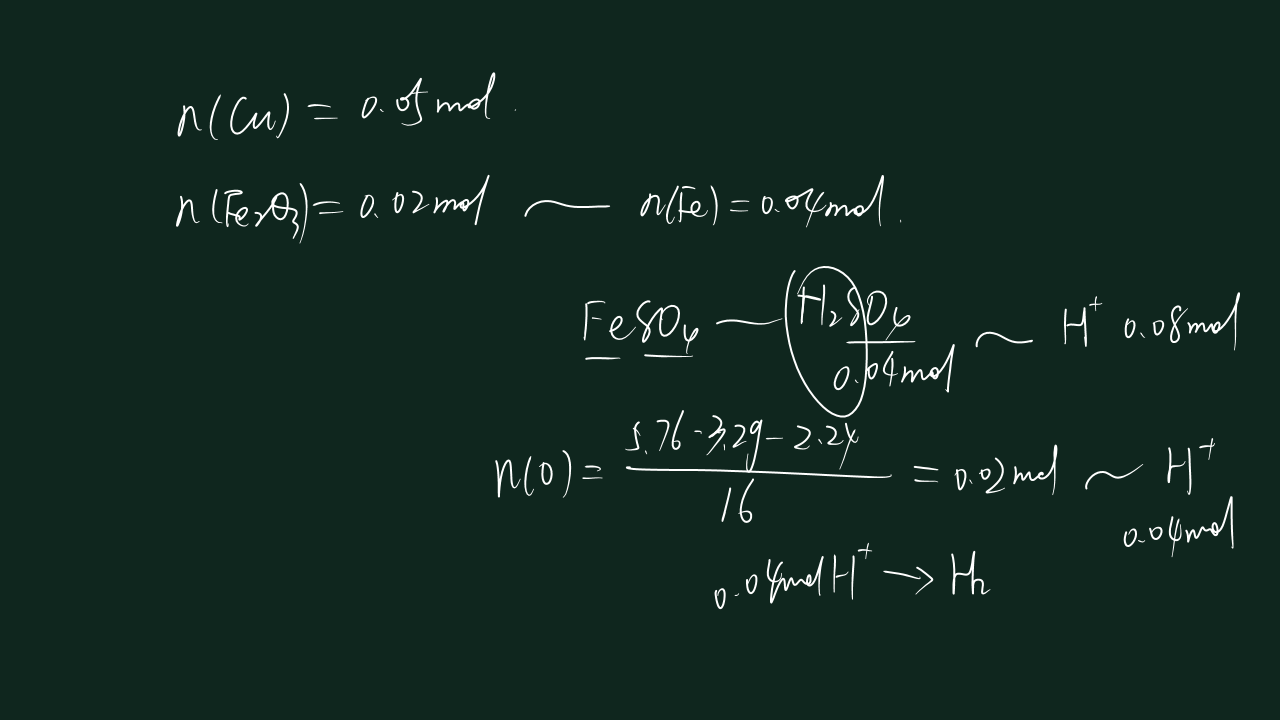 n(Cu) = 0.05mol.
n(Fe₂O₃) = 0.02mol ~ n(Fe) = 0.04mol.
FeSO₄ ~ H₂SO₄ ~ H⁺ 0.08mol
0.04mol
5.76-3.2g-2.24
n(O) = = 0.02mol ~ H⁺
16
0.04mol
0.04mol H⁺ → H₂